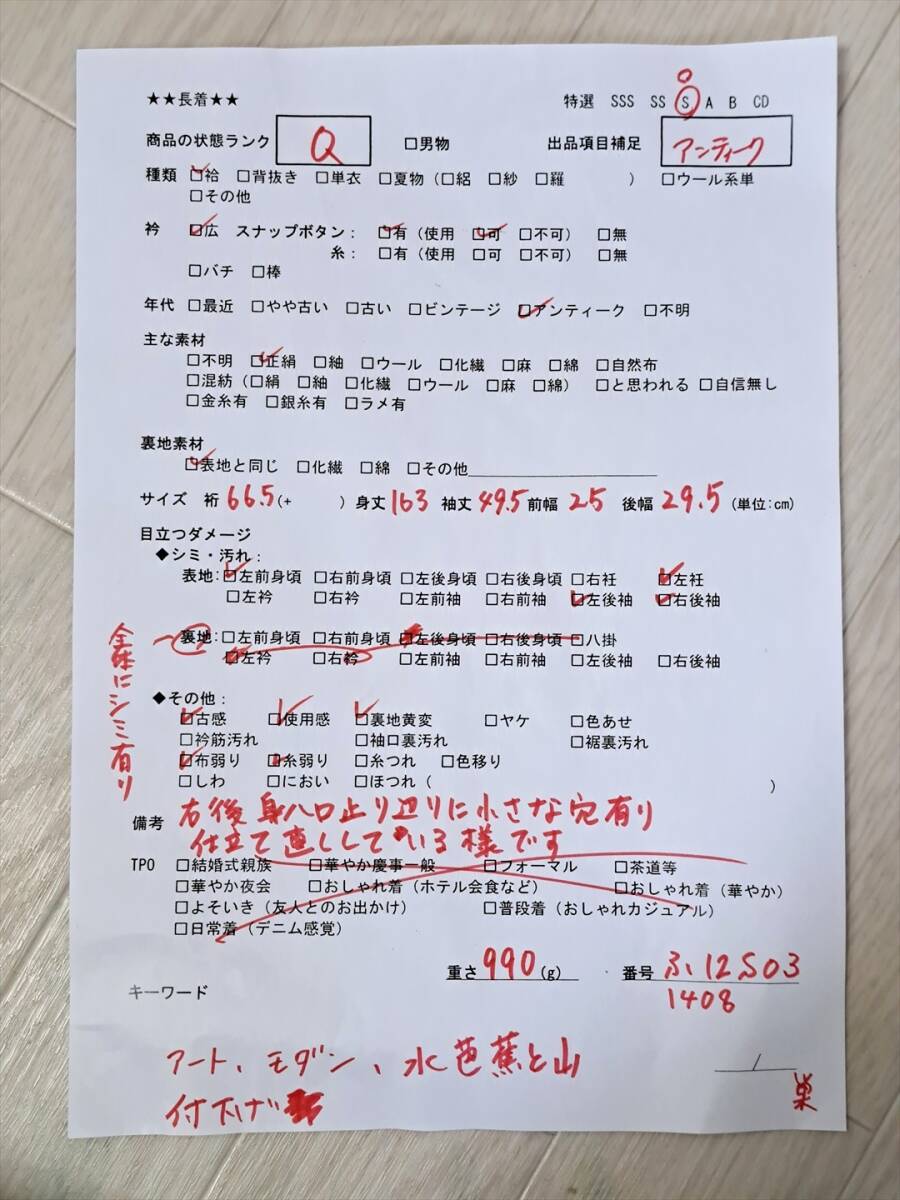 ★★長着★★ 特選 SSS SS S A B CD
商品の状態ランク Q □男物 出品項目補足 アンティーク
種類 □袷 □背抜き □単衣 □夏物(□絽 □紗 □羅 ) □ウール系単
□その他
衿 □広 スナップボタン: □有(使用 □可 □不可) □無
糸: □有(使用 □可 □不可) □無
□バチ □棒
年代 □最近 □やや古い □古い □ビンテージ □アンティーク □不明
主な素材
□不明 □正絹 □紬 □ウール □化繊 □麻 □綿 □自然布
□混紡(□絹 □紬 □化繊 □ウール □麻 □綿) □と思われる □自信無し
□金糸有 □銀糸有 □ラメ有
裏地素材
□表地と同じ □化繊 □綿 □その他
サイズ 裄 66.5 (+ ) 身丈 163 袖丈 49.5 前幅 25 後幅 29.5 (単位:cm)
目立つダメージ
◆シミ・汚れ:
表地: □左前身頃 □右前身頃 □左後身頃 □右後身頃 □右衽 □左衽
□左衿 □右衿 □左前袖 □右前袖 □左後袖 □右後袖
裏地: □左前身頃 □右前身頃 □左後身頃 □右後身頃 □八掛
□左衿 □右衿 □左前袖 □右前袖 □左後袖 □右後袖
全体にシミ有り
◆その他:
□古感 □使用感 □裏地黄変 □ヤケ □色あせ
□衿筋汚れ □袖口裏汚れ □裾裏汚れ
□布弱り □糸弱り □糸つれ □色移り
□しわ □におい □ほつれ( )
備考 右後身八口止り辺りに小さな穴有り
仕立て直ししている様です
TPO □結婚式親族 □華やか慶事一般 □フォーマル □茶道等
□華やか夜会 □おしゃれ着(ホテル会食など) □おしゃれ着(華やか)
□よそいき(友人とのお出かけ) □普段着(おしゃれカジュアル)
□日常着(デニム感覚)
重さ 990 (g) 番号 ふ12S03
1408
キーワード
アート、モダン、水芭蕉と山
付下げ